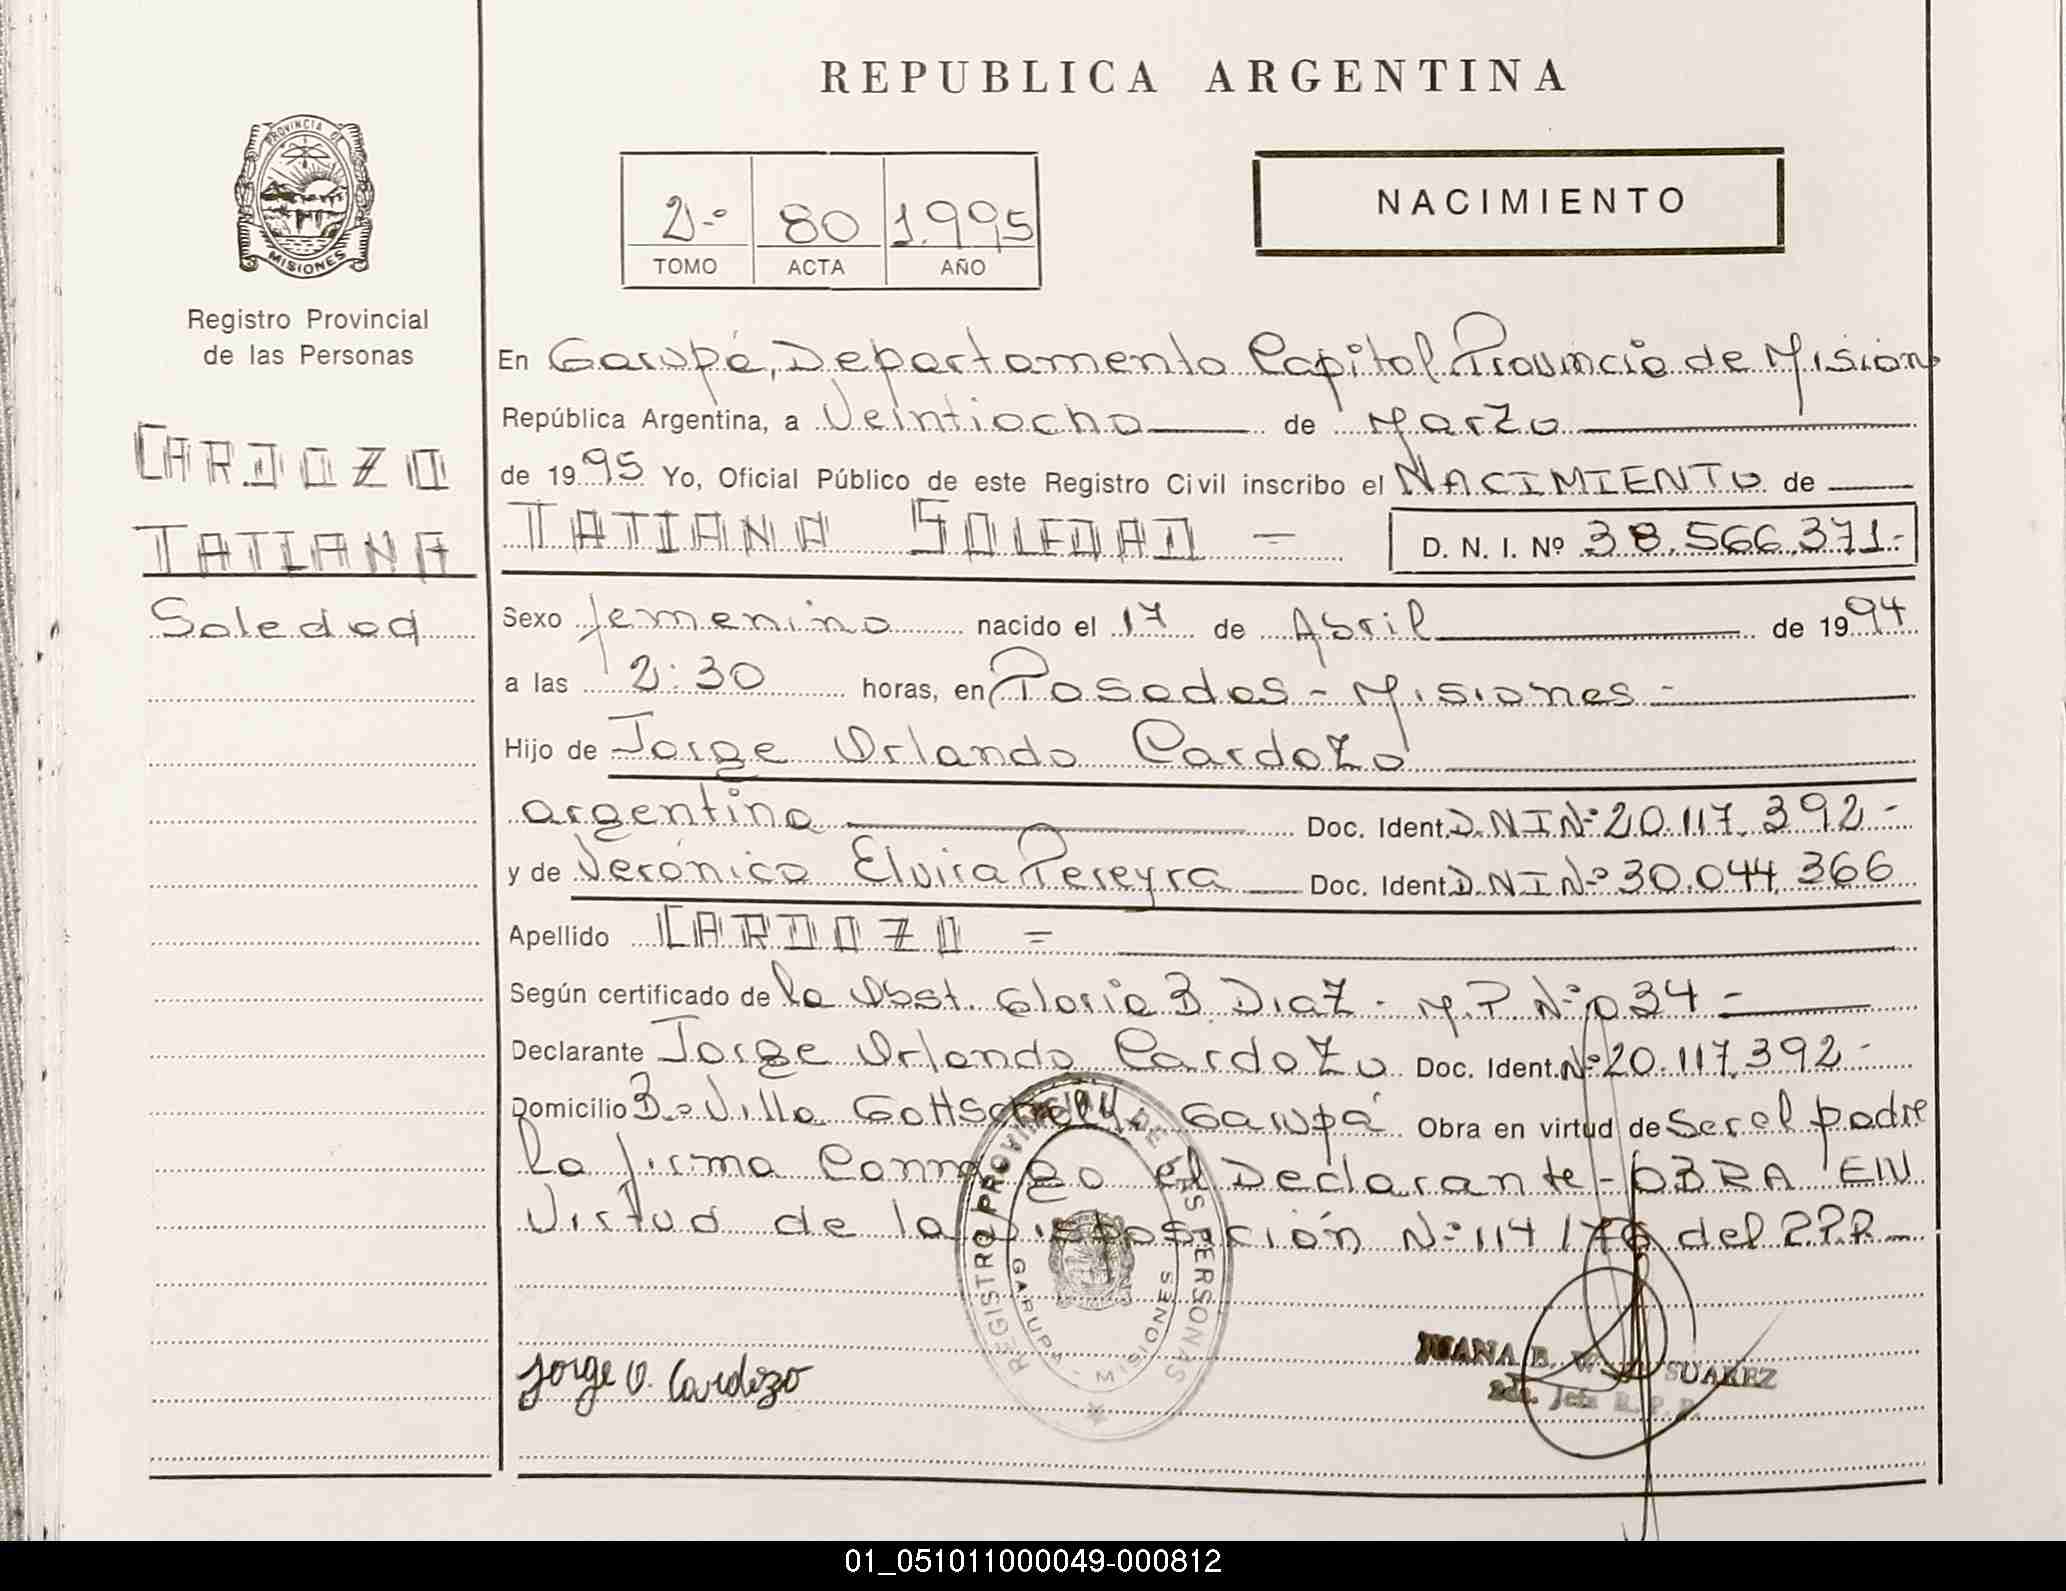 REPUBLICA ARGENTINA
PROVINCIA DE
MISIONES
Registro Provincial
de las Personas
2º 80 1.995
TOMO ACTA AÑO
NACIMIENTO
CARDOZO
TATIANA
Soledad
En Garupá, Departamento Capital Provincia de Misiones
República Argentina, a Veintiocho de Marzo
de 1995 Yo, Oficial Público de este Registro Civil inscribo el NACIMIENTO de
TATIANA SOLEDAD = D. N. I. Nº 38.566.371.-
Sexo femenino nacido el 17 de Abril de 1994
a las 2:30 horas, en Posadas - Misiones -
Hijo de Jorge Orlando Cardozo
argentina Doc. Ident. D.N.I Nº 20.117.392-
y de Verónica Elvira Pereyra Doc. Ident. D.N.I Nº 30.044.366
Apellido CARDOZO =
Según certificado de la Obst. Gloria B. Diaz - M.P. Nº 034 =
Declarante Jorge Orlando Cardozo Doc. Ident. Nº 20.117.392-
Domicilio Bº Villa Garupá Obra en virtud de Ser el padre
La firma Conmigo el Declarante - OBRA EN
Virtud de la Disposición Nº 114/76 del RPP.
REGISTRO PROVINCIAL DE LAS PERSONAS
GARUPA - MISIONES
Jorge O. Cardozo
JUANA B. SUAREZ
2da. Jefa R. P. P.
01_051011000049-000812